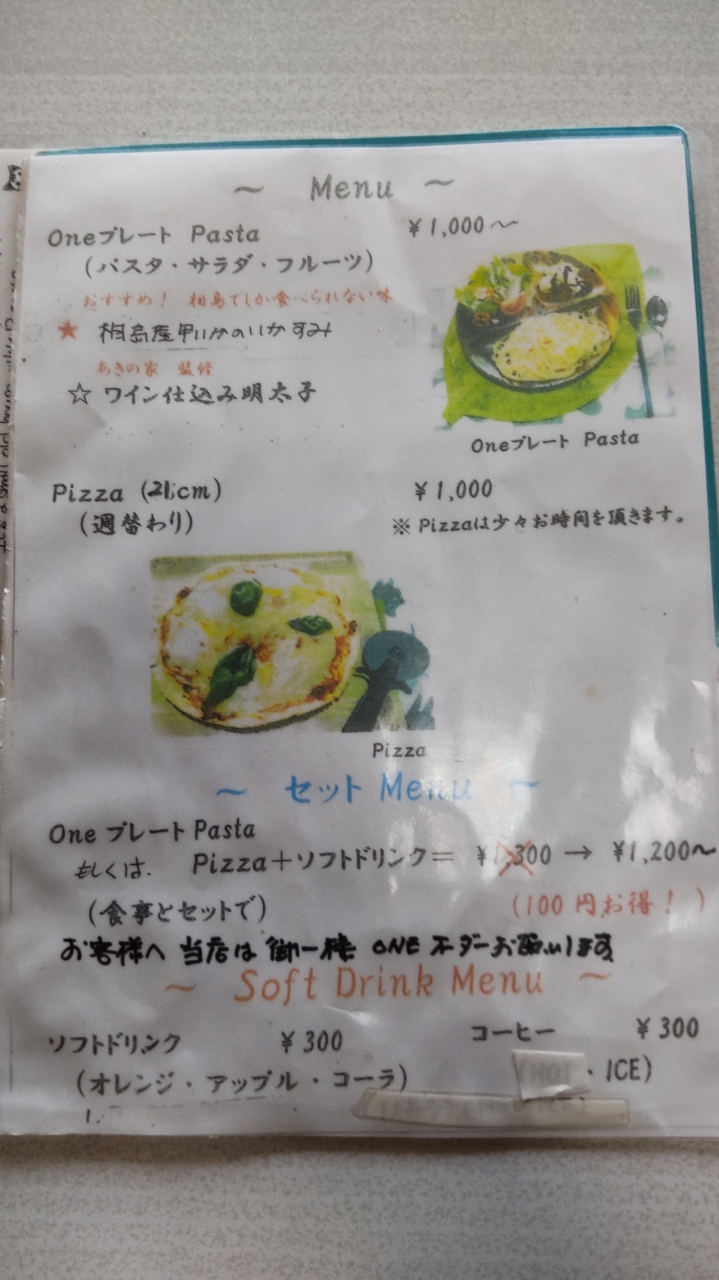 ~ Menu ~
Oneプレート Pasta ¥1,000~
(パスタ・サラダ・フルーツ)
おすすめ! 相島でしか食べられない味
★ 相島産甲いかのいかすみ
あきの家 監修
☆ ワイン仕込み明太子
Oneプレート Pasta
Pizza (21cm) ¥1,000
(週替わり) ※ Pizzaは少々お時間を頂きます。
Pizza
~ セット Menu ~
One プレート Pasta
もしくは. Pizza+ソフトドリンク= ¥1,300 → ¥1,200~
(食事とセットで) (100円お得!)
お客様へ 当店は 御一人様 ONE オーダーお願いします
~ Soft Drink Menu ~
ソフトドリンク ¥300 コーヒー ¥300
(オレンジ・アップル・コーラ) (HOT・ICE)